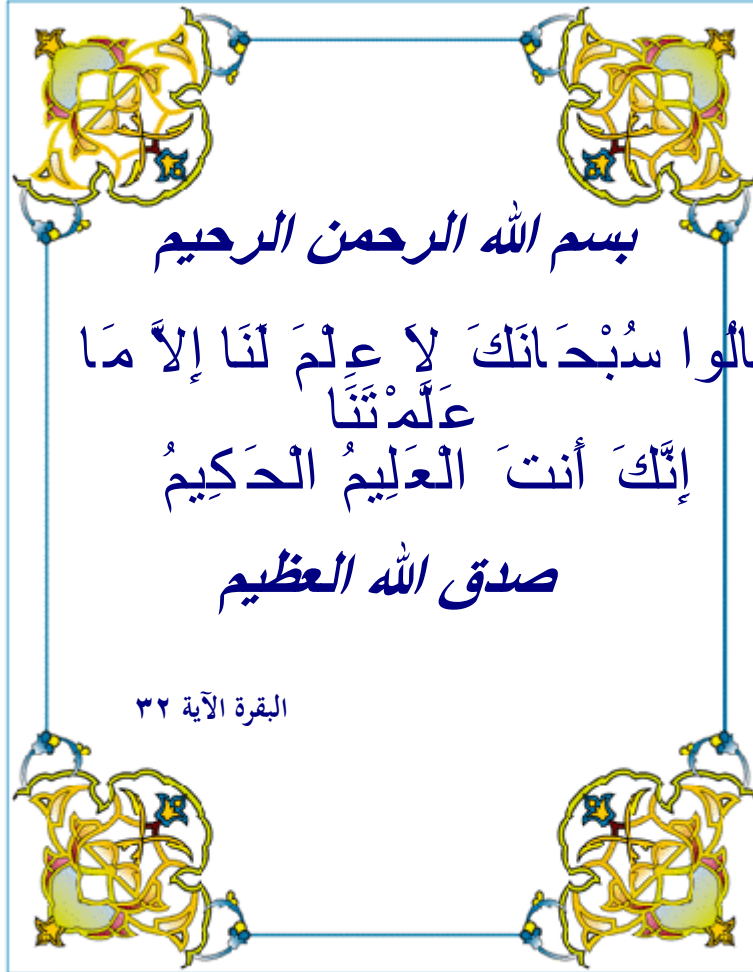 بسم الله الرحمن الرحيم
الُوا سُبْحَانَكَ لاَ عِلْمَ لَنَا إِلاَّ مَا
عَلَّمْتَنَا
إِنَّكَ أَنتَ الْعَلِيمُ الْحَكِيمُ
صدق الله العظيم
البقرة الآية ٣٢